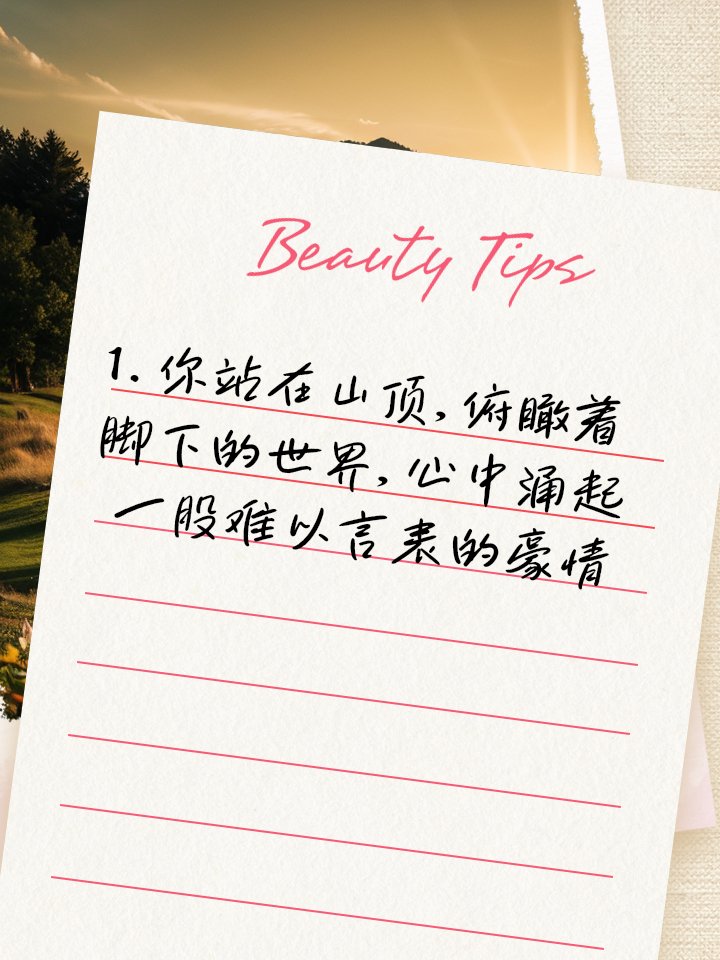 Beauty Tips
1. 你站在山顶,俯瞰着
脚下的世界,心中涌起
一股难以言表的豪情